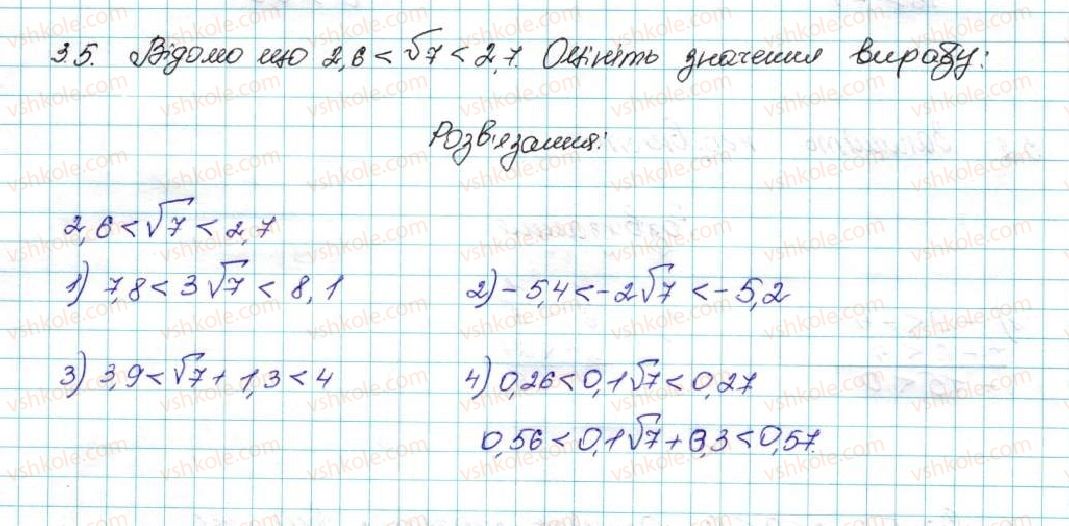 3.5. Відомо що 2,6 < √7 < 2,7. Оцініть значення виразу:
Розв'язання:
2,6 < √7 < 2,7
1) 7,8 < 3√7 < 8,1 2) -5,4 < -2√7 < -5,2
3) 3,9 < √7 + 1,3 < 4 4) 0,26 < 0,1√7 < 0,27
0,56 < 0,1√7 + 0,3 < 0,57.